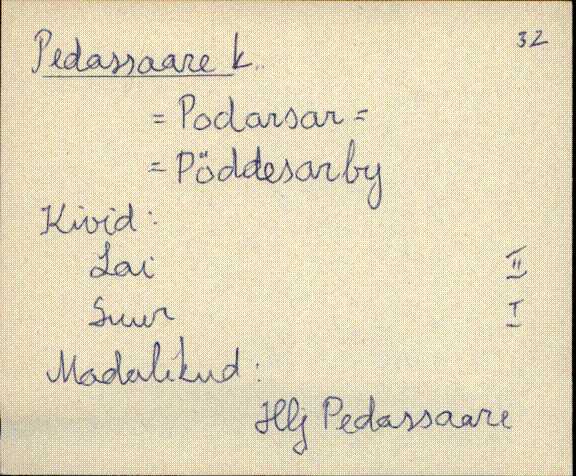 32
Pedassaare k.
= Podarsar =
= Pöddesarby
Kivid:
Lai II
Suur I
Madalikud:
Hlj Pedassaare